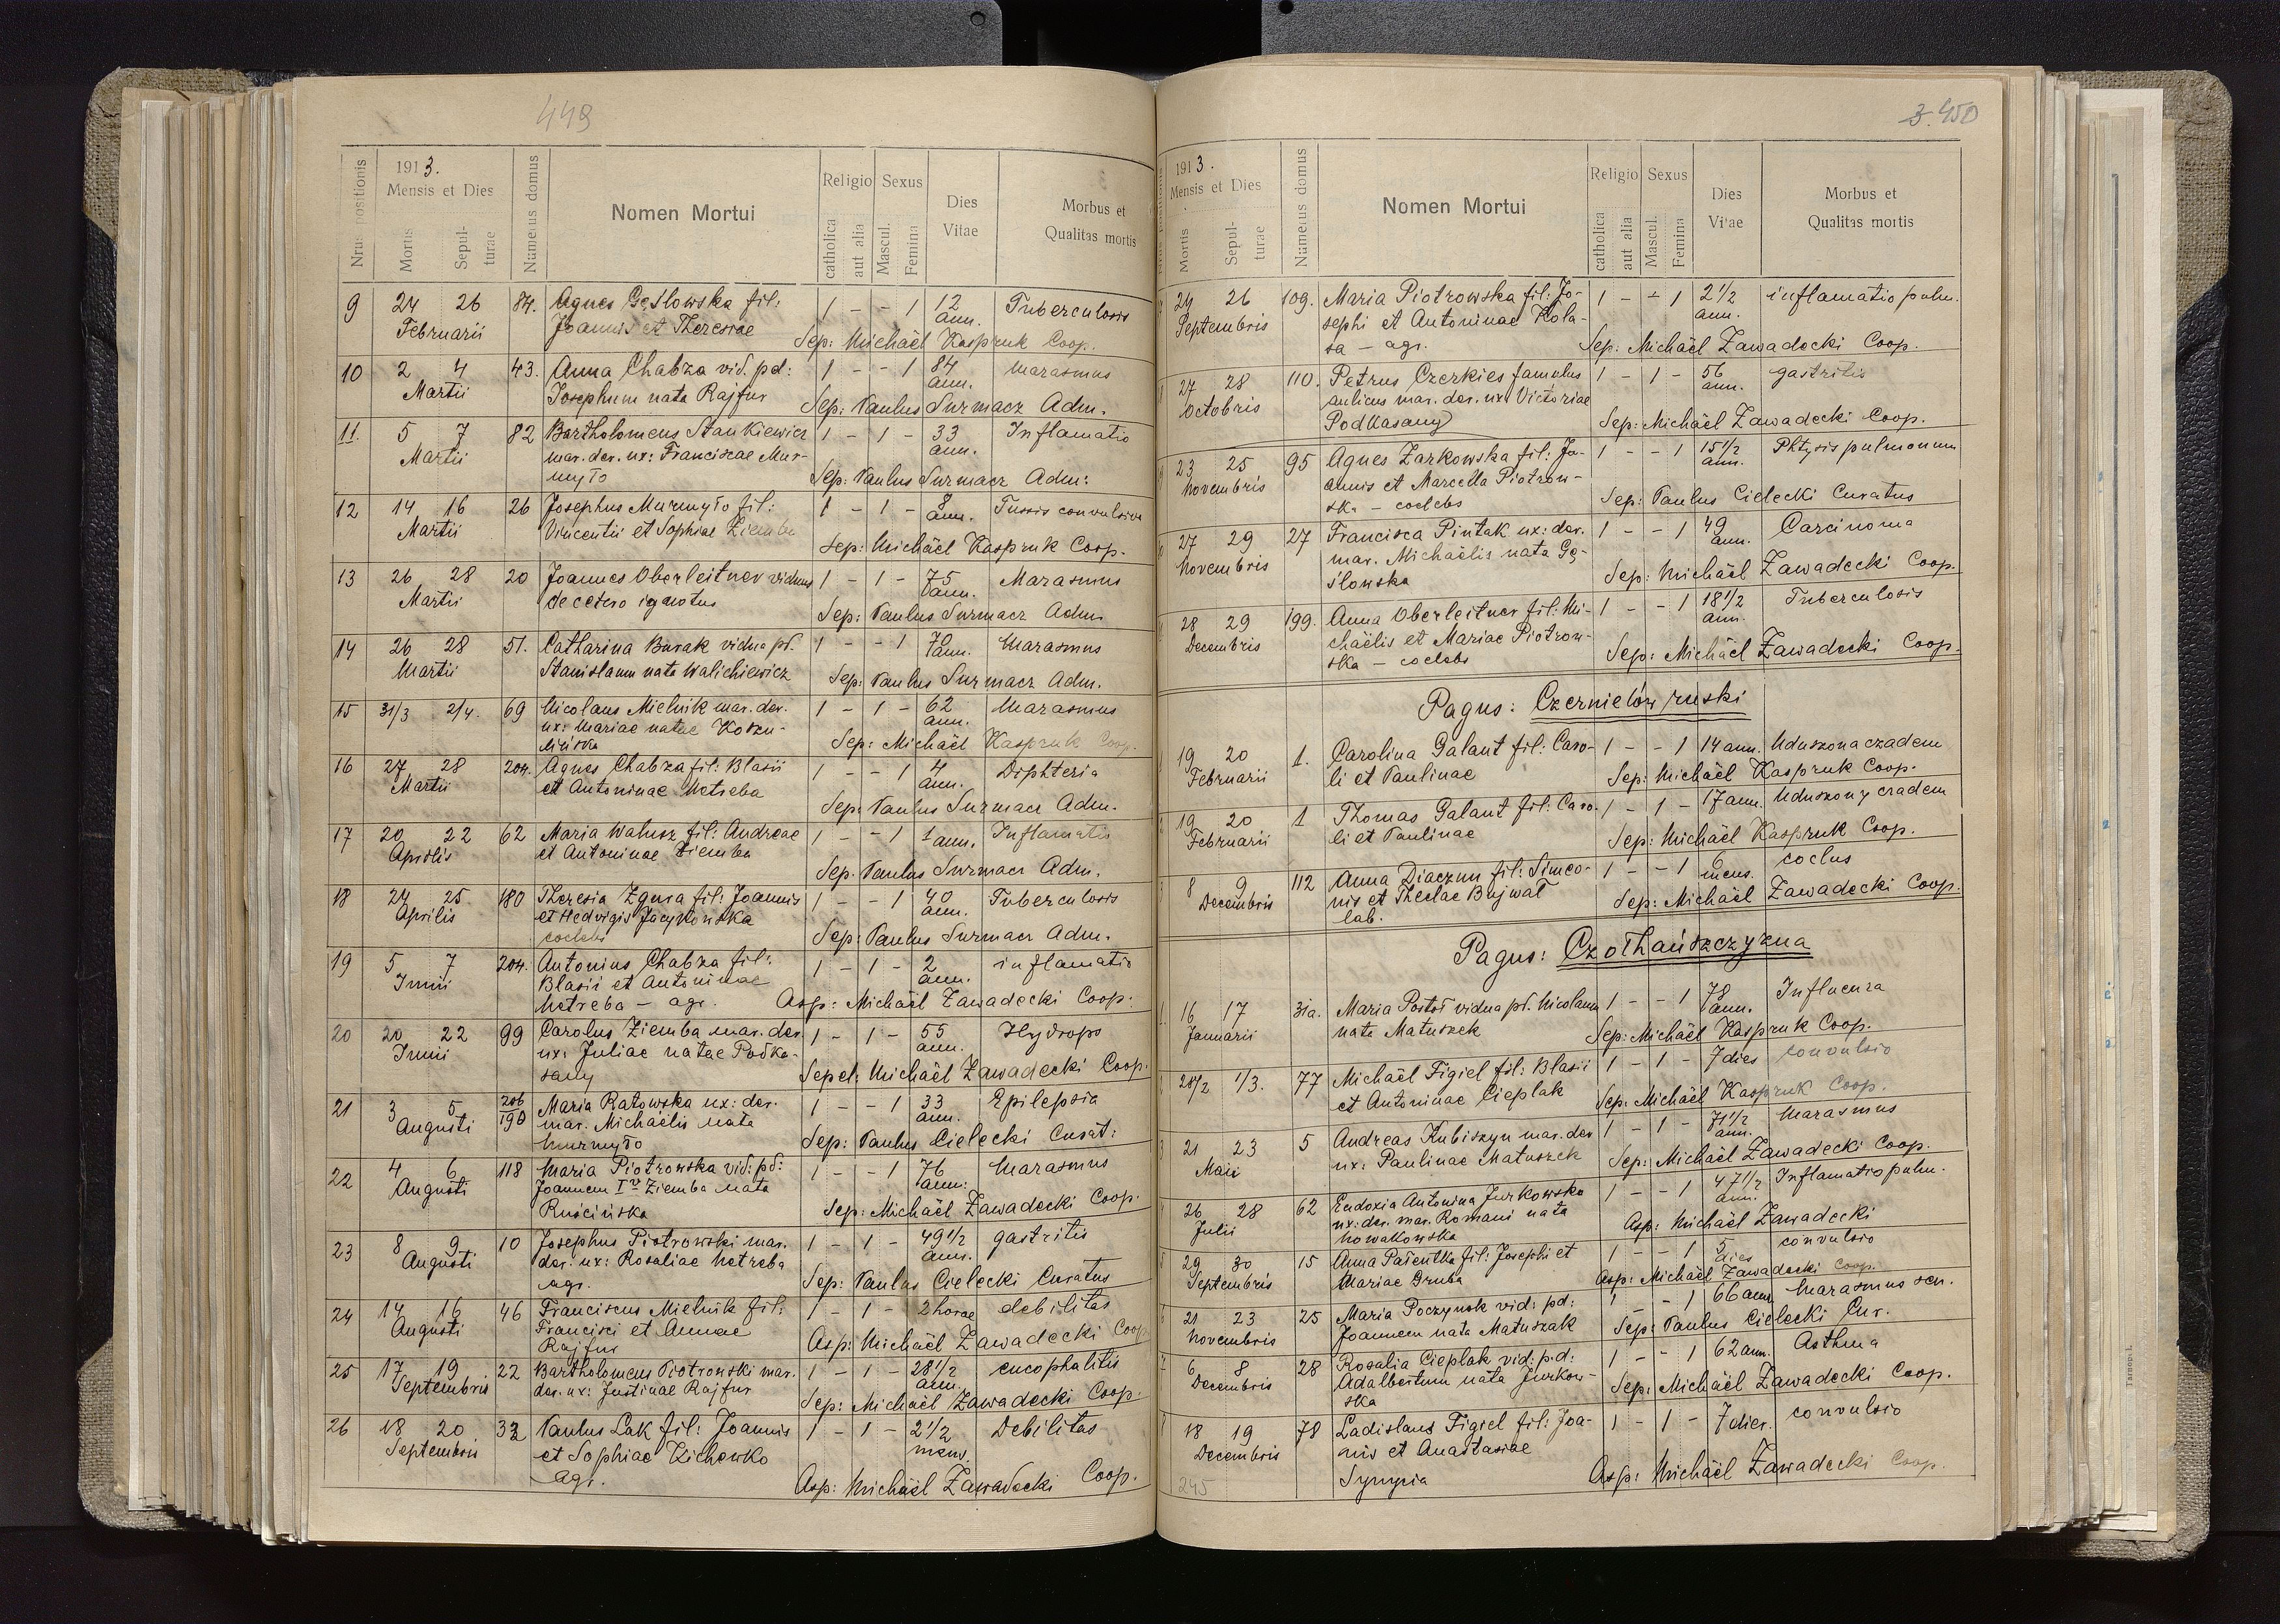 449
Nrus positionis
1913.
Mensis et Dies
Mortis
Sepul-
turae
Numerus domus
Nomen Mortui
Religio
catholica
aut alia
Sexus
Mascul.
Femina
Dies
Vitae
Morbus et
Qualitas mortis
9 24 26 84. Agnes Gęsłowska fil: 1 - - 1 12 Tuberculosis
Februarii Joannis et Theresiae ann.
Sep: Michaël Kaspruk Coop.
10 2 4 43. Anna Chabza vid. pd: 1 - - 1 84 Marasmus
Martii Josephum nata Rajfur ann.
Sep: Paulus Surmacz Adm.
11. 5 7 82 Bartholomeus Stankiewicz 1 - 1 - 33 Inflamatio
Martii mar. der. ux: Franciscae Mur- ann.
myło Sep: Paulus Surmacz Adm:
12 14 16 26 Josephus Murmyło fil: 1 - 1 - 8 Tussis convulsiva
Martii Vincentii et Sophiae Ziemba ann.
Sep: Michaël Kaspruk Coop.
13 26 28 20 Joannes Oberleitner viduus 1 - 1 - 75 Marasmus
Martii de cetero ignotus ann.
Sep: Paulus Surmacz Adm.
14 26 28 51. Catharina Burak vidua pd. 1 - - 1 70 Marasmus
Martii Stanislaum nata Walichiewicz ann.
Sep: Paulus Surmacz Adm.
15 31/3 2/4. 69 Nicolaus Mielnik mar. der. 1 - 1 - 62 Marasmus
ux: Mariae natae Koszu- ann.
lińska Sep: Michaël Kaspruk Coop.
16 27 28 204. Agnes Chabza fil: Blasii 1 - - 1 4 Diphteria
Martii et Antoninae Netreba ann.
Sep: Paulus Surmacz Adm.
17 20 22 62 Maria Walusz fil: Andreae 1 - - 1 1 ann. Inflamatio
Aprilis et Antoninae Ziemba
Sep. Paulus Surmacz Adm.
18 24 25 180 Theresia Zgura fil: Joannis 1 - - 1 40 Tuberculosis
Aprilis et Hedvigis Jacykowska ann.
coelebs Sep: Paulus Surmacz Adm.
19 5 7 204. Antonius Chabza fil: 1 - 1 - 2 inflamatio
Junii Blasii et Antoninae ann.
Netreba - agr. Asp: Michaël Zawadecki Coop:
20 20 22 99 Carolus Ziemba mar. der. 1 - 1 - 55 Hydrops
Junii ux: Juliae natae Podka- ann.
sany Sepel: Michaël Zawadecki Coop.
21 3 5 206/190 Maria Ratowska ux: der. 1 - - 1 33 Epilepsia
Augusti mar. Michaëlis nata ann.
Murmyło Sep: Paulus Cielecki Curat:
22 4 6 118 Maria Piotrowska vid: pd: 1 - - 1 76 Marasmus
Augusti Joannem Iv Ziemba nata ann:
Ruścińska Sep: Michaël Zawadecki Coop.
23 8 9 10 Josephus Piotrowski mar. 1 - 1 - 49 1/2 gastritis
Augusti der: ux: Rosaliae Netreba ann.
agr. Sep: Paulus Cielecki Curatus
24 14 16 46 Franciscus Mielnik fil: 1 - 1 - 2 horae debilitas
Augusti Francisci et Annae
Rajfur Asp: Michaël Zawadecki Coop
25 17 19 22 Bartholomeus Piotrowski mar. 1 - 1 - 28 1/2 encophalitis
Septembris der. ux: Justinae Rajfur ann.
Sep: Michaël Zawadecki Coop:
26 18 20 32 Paulus Łak fil: Joannis 1 - 1 - 2 1/2 Debilitas
Septembris et Sophiae Zichowko mens.
agr. Asp: Michaël Zawadecki Coop.
3. 450
1913.
Mensis et Dies
Mortis
Sepul-
turae
Numerus domus
Nomen Mortui
Religio
catholica
aut alia
Sexus
Mascul.
Femina
Dies
Vitae
Morbus et
Qualitas mortis
24 26 109. Maria Piotrowska fil: Jo- 1 - - 1 2 1/2 inflamatio pulm.
Septembris sephi et Antoninae Kola- ann.
sa - agr. Sep: Michaël Zawadecki Coop.
27 28 110. Petrus Czerkies famulus 1 - 1 - 56 gastritis
Octobris aulicus mar. der. ux: Victoriae ann.
Podkasany Sep: Michaël Zawadecki Coop.
23 25 95 Agnes Zarkowska fil: Jo- 1 - - 1 15 1/2 Phtysis pulmonum
Novembris annis et Marcella Piotrow- ann.
ska - coelebs Sep: Paulus Cielecki Curatus
27 29 27 Francisca Pintak ux: der. 1 - - 1 49 Carcinoma
Novembris mar. Michaëlis nata Gę- ann.
słowska Sep: Michaël Zawadecki Coop.
28 29 199. Anna Oberleitner fil: Mi- 1 - - 1 18 1/2 Tuberculosis
Decembris chaëlis et Mariae Piotrow- ann.
ska - coelebs Sep: Michaël Zawadecki Coop.
Pagus: Czernielów ruski
19 20 1. Carolina Galant fil: Caro- 1 - - 1 14 ann. Uduszona czadem
Februarii li et Paulinae Sep: Michaël Kaspruk Coop.
19 20 1 Thomas Galant fil: Caro- 1 - 1 - 17 ann. Uduszony czadem
Februarii li et Paulinae Sep: Michaël Kaspruk Coop.
8 9 112 Anna Diaczun fil: Simeo- 1 - - 1 6 coclus
Decembris nis et Theclae Bujwał mens.
lab. Sep: Michaël Zawadecki Coop.
Pagus: Czołhańszczyzna
16 17 31a. Maria Postoł vidua pd. Nicolaum 1 - - 1 78 Influenza
Januarii nata Matuszek ann.
Sep: Michaël Kaspruk Coop.
28/2 1/3. 77 Michaël Figiel fil: Blasii 1 - 1 - 7 dies convulsio
et Antoninae Cieplak Sep: Michaël Kaspruk Coop.
21 23 5 Andreas Kubiszyn mar. der 1 - 1 - 71 1/2 Marasmus
Maii ux: Paulinae Matuszek ann.
Sep: Michaël Zawadecki Coop.
26 28 62 Eudoxia Antonina Jurkowska 1 - - 1 47 1/2 Inflamatio pulm.
Julii ux: der. mar. Romani nata ann.
Nowakowska Asp: Michaël Zawadecki
29 30 15 Anna Palentka fil: Josephi et 1 - - 1 5 convulsio
Septembris Mariae Gruba dies
Asp: Michaël Zawadecki Coop.
21 23 25 Maria Poczynok vid: pd: 1 - - 1 66 ann. Marasmus sen.
Novembris Joannem nata Matuszak Sep: Paulus Cielecki Cur.
6 8 28 Rosalia Cieplak vid: p.d: 1 - - 1 62 ann. Asthma
Decembris Adalbertum nata Jurkow-
ska Sep: Michaël Zawadecki Coop.
18 19 78 Ladislaus Figiel fil: Joa- 1 - 1 - 7 dies. convulsio
Decembris nis et Anastasiae
Synycia Asp: Michaël Zawadecki Coop.
245